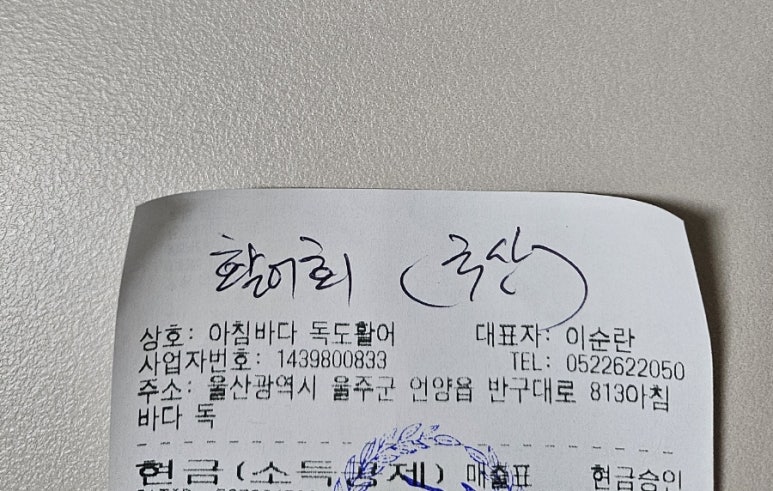 활어회 (국산)
상호: 아침바다 독도활어 대표자: 이순란
사업자번호: 1439800833 TEL: 0522622050
주소: 울산광역시 울주군 언양읍 반구대로 813아침
바다 독
현금(소득공제) 매출표 현금승인